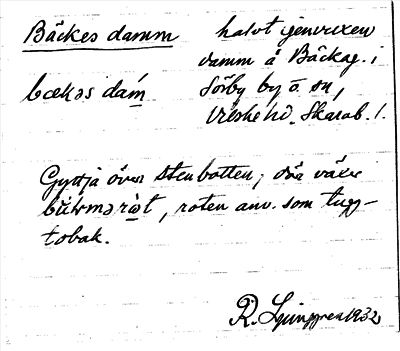 Bäckes damm
halvt igenvuxen
damm å Bäckag. i
bækəs dam̄
Sörby by ö. sn,
Viske hd. Skarab. l.
Gyttja över stenbotten, där växer
tobak.
roten anv. som tugg-
R. Ljunggren 1932